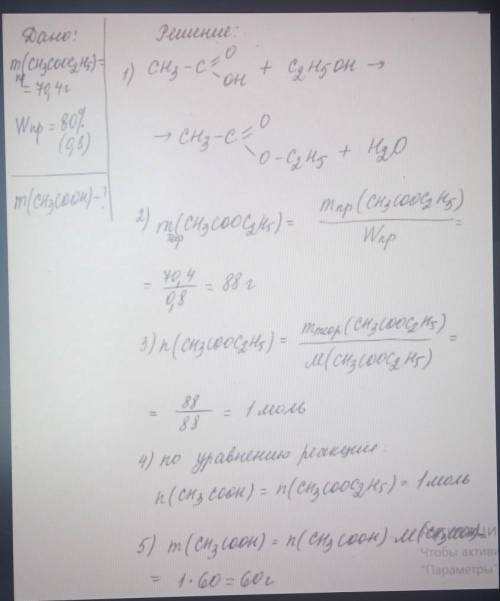 Дано:
m(CH3COOC2H5)=
пр
= 70,4г
Wпр = 80%
(0,8)
m(CH3COOH)-?
Решение:
1) CH3-C
O
OH
+ C2H5OH →
→ CH3-C
O
O-C2H5
+ H2O
2) m(CH3COOC2H5) = mпр(CH3COOC2H5) / Wпр =
теор
= 70,4 / 0,8 = 88г
3) n(CH3COOC2H5) = mтеор(CH3COOC2H5) / M(CH3COOC2H5) =
= 88 / 88 = 1 моль
4) по уравнению реакции:
n(CH3COOH) = n(CH3COOC2H5) = 1 моль
5) m(CH3COOH) = n(CH3COOH) · M(CH3COOH)=
= 1·60 = 60г
Чтобы активи
"Параметры"